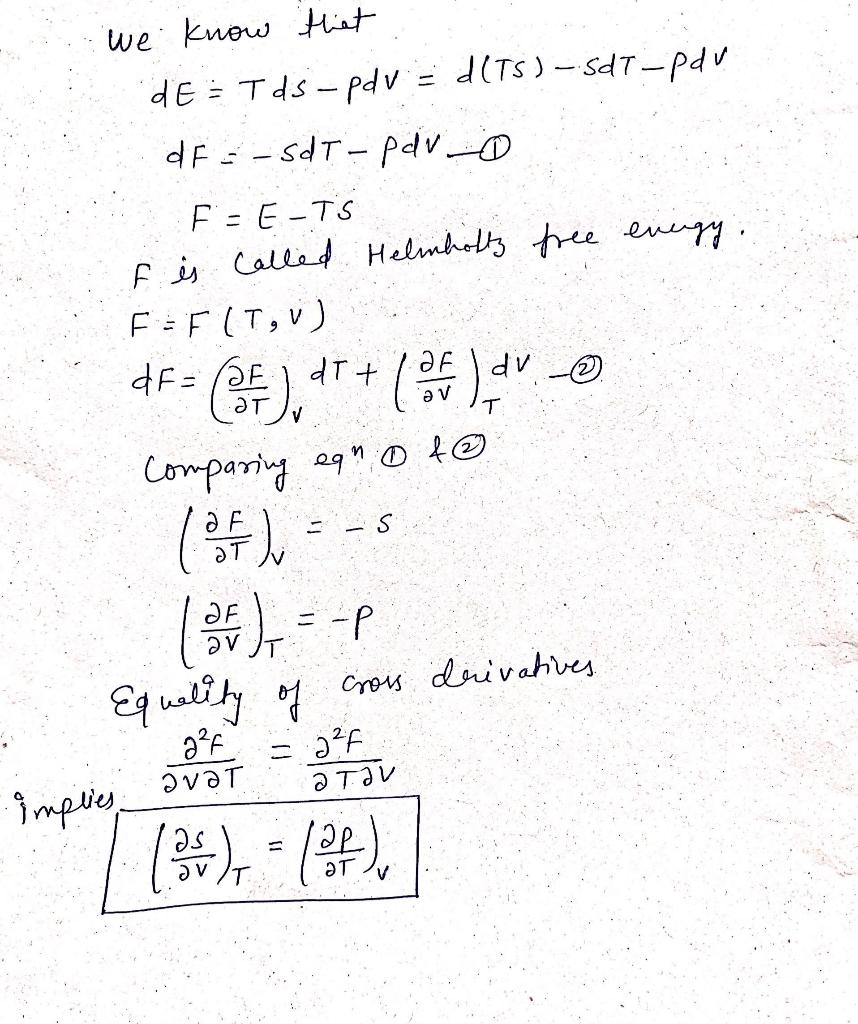 we know that
dE = Tds – pdv = d(TS) – SdT – pdv
dF = – SdT – Pdv —①
F = E – TS
F is called Helmholtz free energy.
F = F(T, V)
dF = (∂F/∂T)_V dT + (∂F/∂V)_T dV —②
Comparing eqⁿ ① & ②
(∂F/∂T)_V = – S
(∂F/∂V)_T = – P
Equality of cross derivatives
∂²F/∂V∂T = ∂²F/∂T∂V
implies
(∂S/∂V)_T = (∂P/∂T)_V